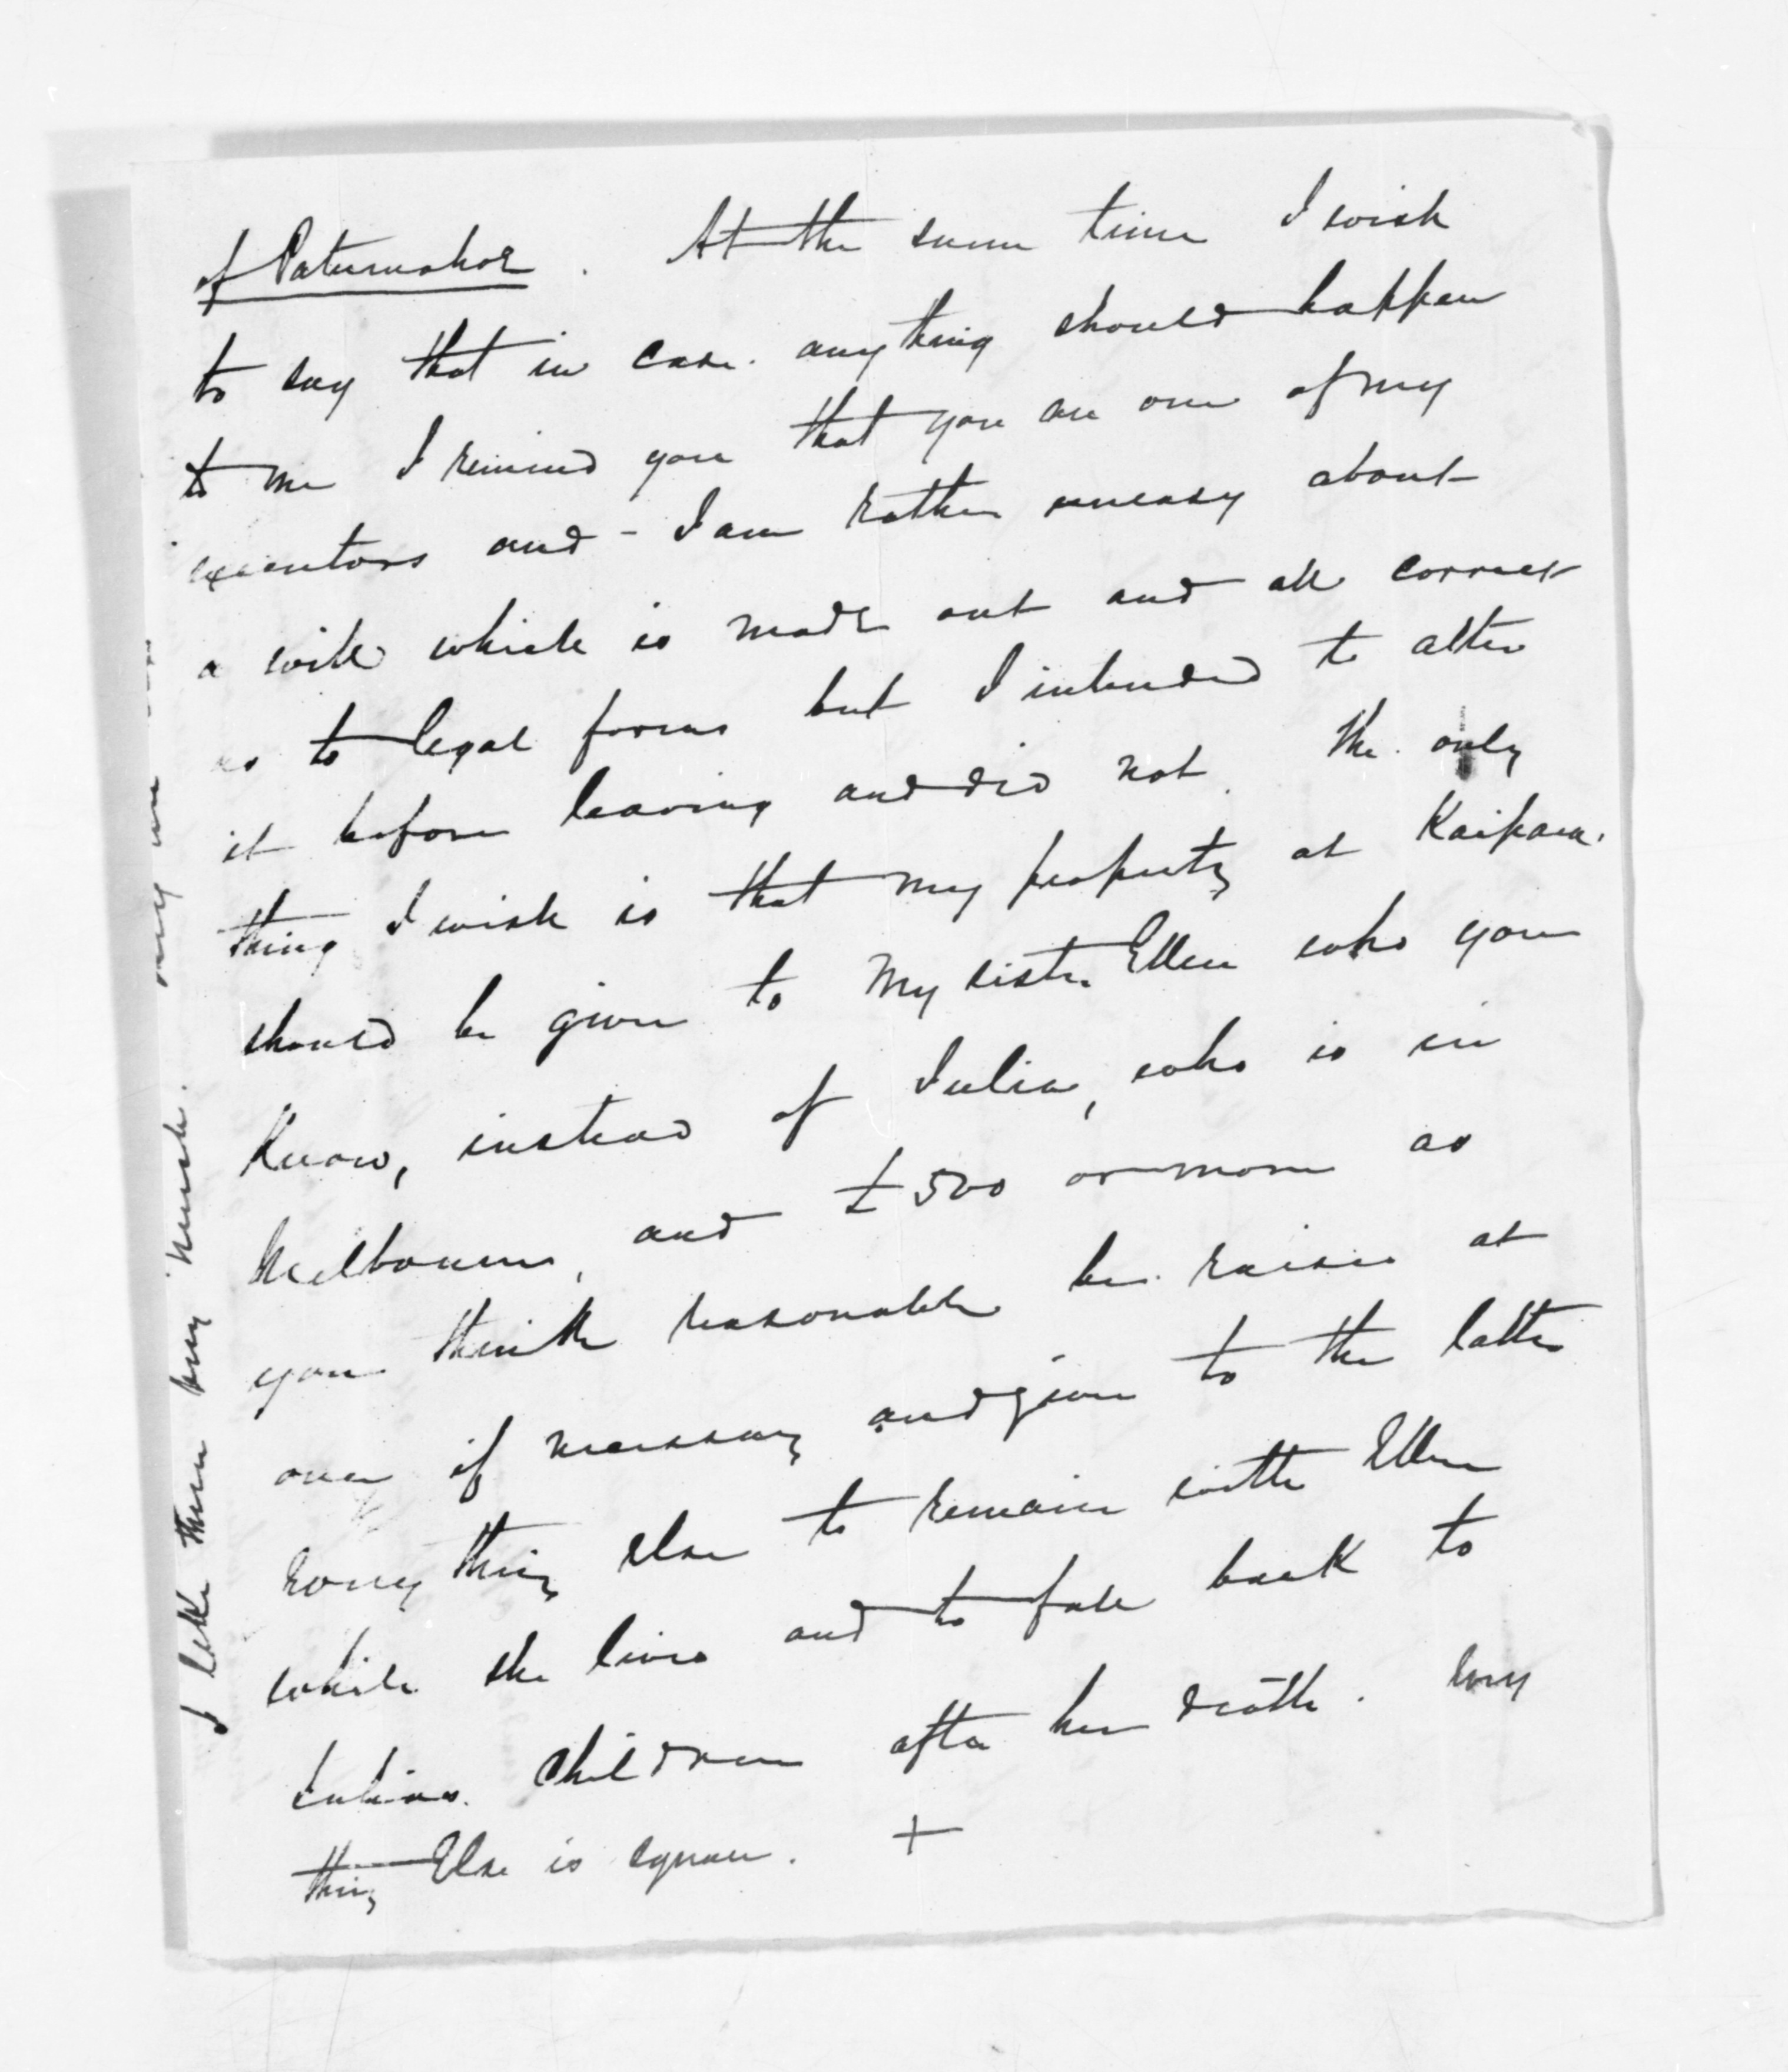 of Patumahoe. At the same time I wish
to say that in case anything should happen
to me I remind you that you are one of my
executors and - I am rather uneasy about
a will which is made out and all correct
as to legal forms but I intended to alter
it before leaving and did not. The only
thing I wish is that my property at Kaipara
should be given to my sister Ellen who you
know, instead of Julia, who is in
Melbourne, and £500 or more as
you think reasonable be raised at
once if necessary and given to the latter
every thing else to remain with Ellen
while she lives and to fall back to
Julias children after her death. Every
thing Else is square. +
I like them very much.